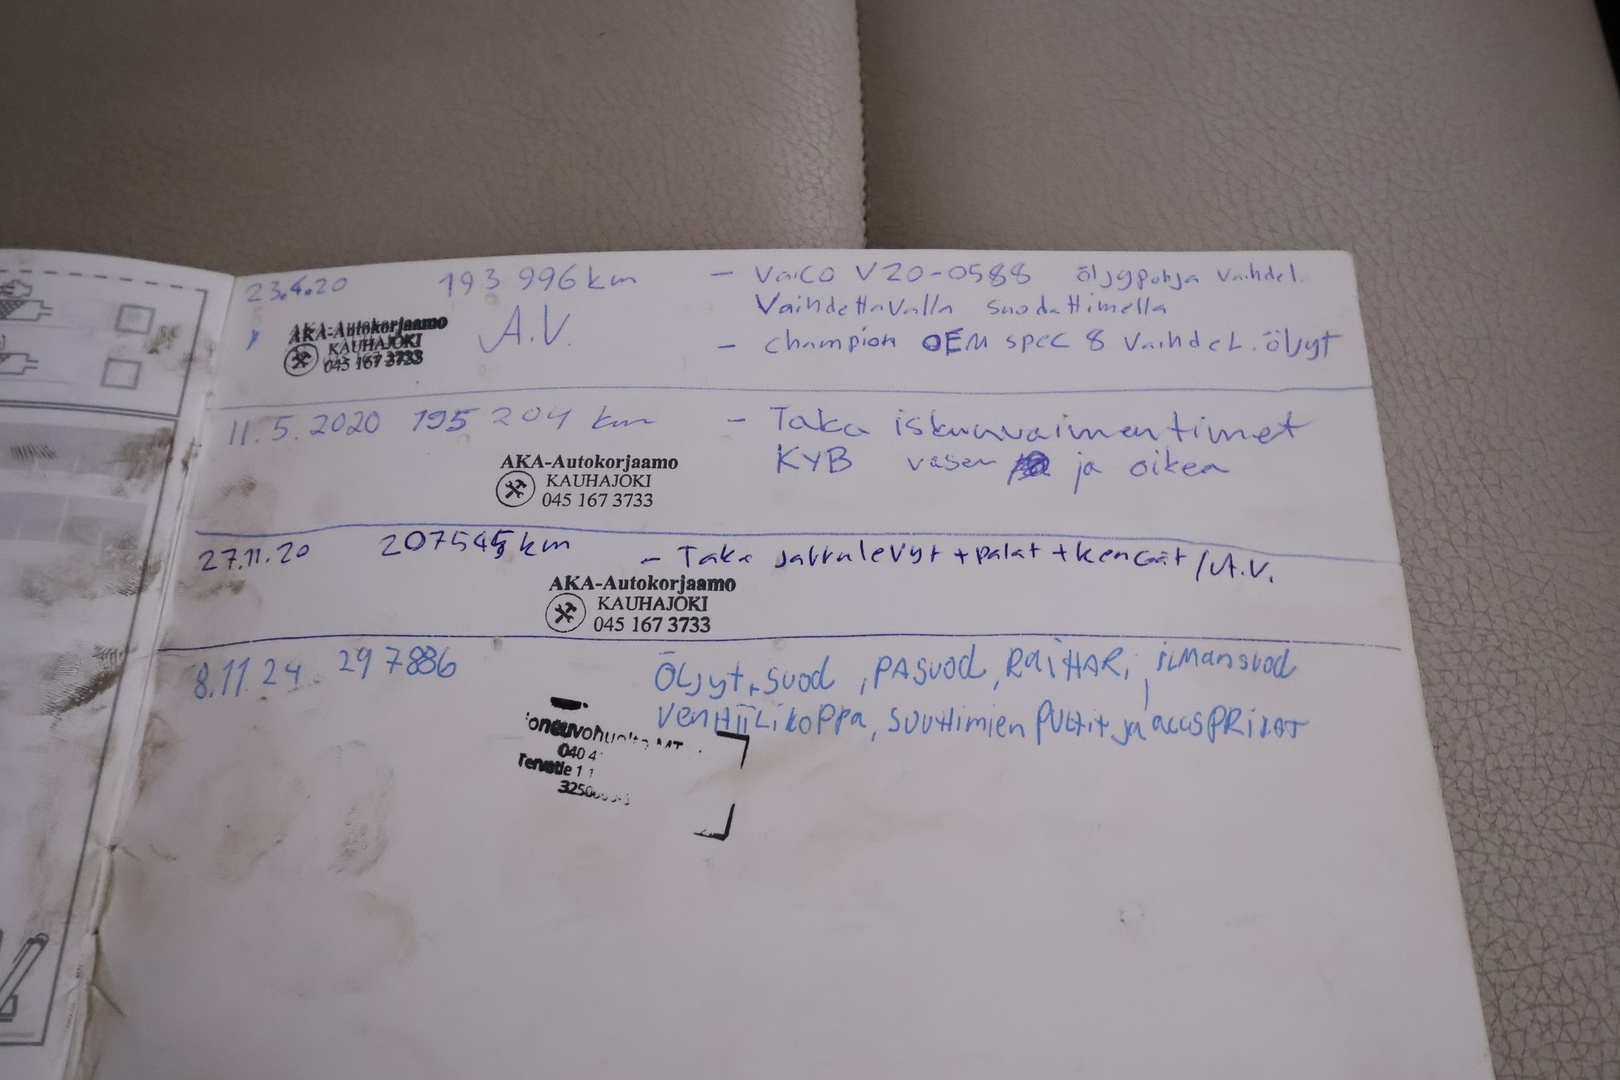 23.4.20 193 996 km – Vaico V20-0588 öljypohja vaihdel.
Vaihdettavalla suodattimella
AKA-Autokorjaamo A.V.
KAUHAJOKI – Champion OEM spec 8 vaihdel. öljyt
045 167 3733
11.5.2020 195 204 km – Taka iskunvaimentimet
KYB vasen ja oikea
AKA-Autokorjaamo
KAUHAJOKI
045 167 3733
27.11.20 207545 km – Taka jarrulevyt + palat + kengät / A.V.
AKA-Autokorjaamo
KAUHAJOKI
045 167 3733
8.11.24 297886 Öljyt, suod, PASUOD, RAITTAR, ilmansuod
venttiilikoppa, suuttimien pultit ja
040 4
Tervatie 1 1
3250